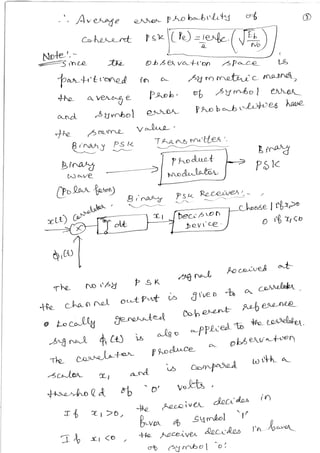 ∴ Average error probability of ③
Coherent PSK (Pe) = 1/2 erfc (√(Eb/N0))
Note:-
Since the observation space is
partitioned in a symmetric manner,
the average Prob. of symbol error
and symbol error Probabilities have
the same value.
Binary PSK Transmitter:
Binary wave (Polar form) → Product Modulator → Binary PSK
Binary PSK Receiver:-
x(t) Correlator × ∫ dt x1 Decision Device choose 1 if x1>0
0 if x1<0
ϕ1(t)
The noisy PSK signal received at
the channel output is given to a correlator.
Locally generated Coherent reference
signal ϕ1(t) is also applied to the correlator.
The Correlator Produce a observation
scalar x1 and is compared with a
threshold of '0' volts.
If x1>0, the receiver decides in
favor of symbol '1'
If x1<0, the receiver decides in favor
of symbol '0'.